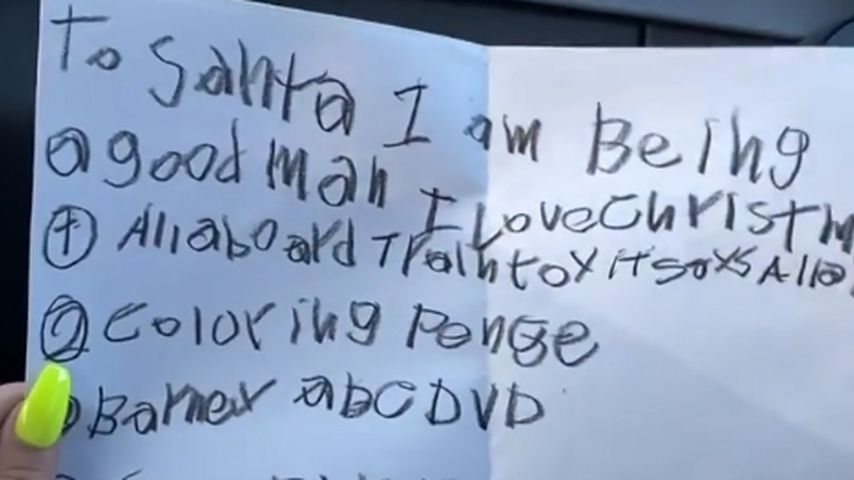 To Santa I am Being
a good man I Love Christm
① All aboard Train toy it says Alla
② Coloring Ponge
Barner abC DVD